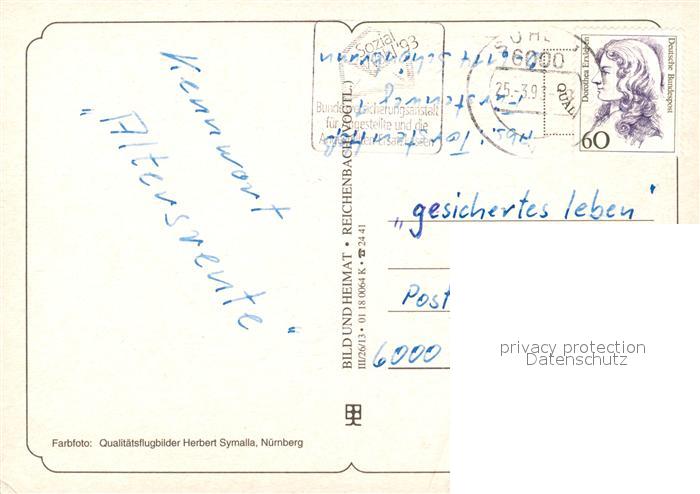 Kennwort
„Altersrente"
Sozial
wahl '93
Bundesversicherungsanstalt
für Angestellte und die
SUHL
6000
25.-3.9
Dorothea Erxleben
Deutsche Bundespost
60
„gesichertes leben"
Post
6000
BILD UND HEIMAT • REICHENBACH (VOGTL)
III/26/13 • 01 18 0064 K • ☎ 24 41
privacy protection
Datenschutz
Farbfoto: Qualitätsflugbilder Herbert Symalla, Nürnberg